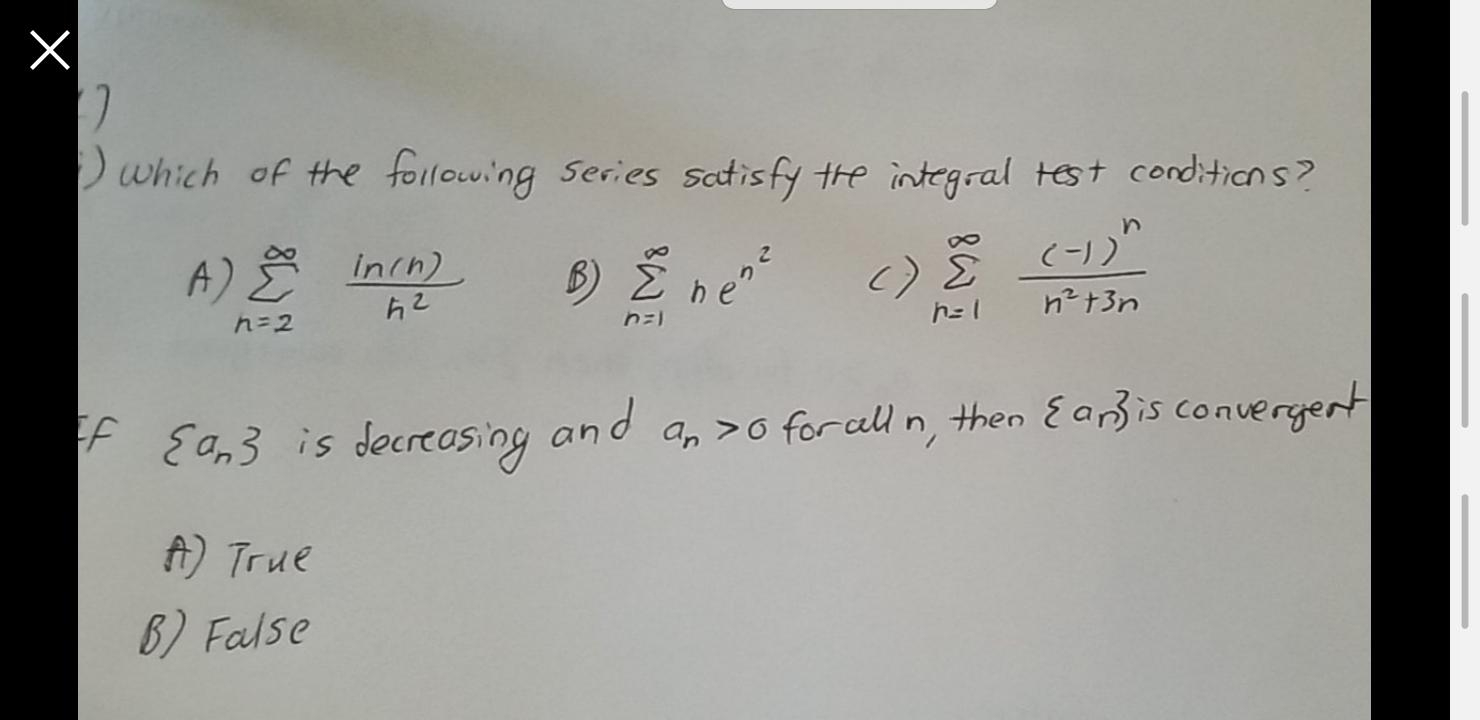 )
i) which of the following series satisfy the integral test conditions?
A) ∞ Σ n=2 ln(n) / n² B) ∞ Σ n=1 n e^n² C) ∞ Σ n=1 (-1)^n / n²+3n
If {an} is decreasing and an >0 for all n, then {an} is convergent
A) True
B) False